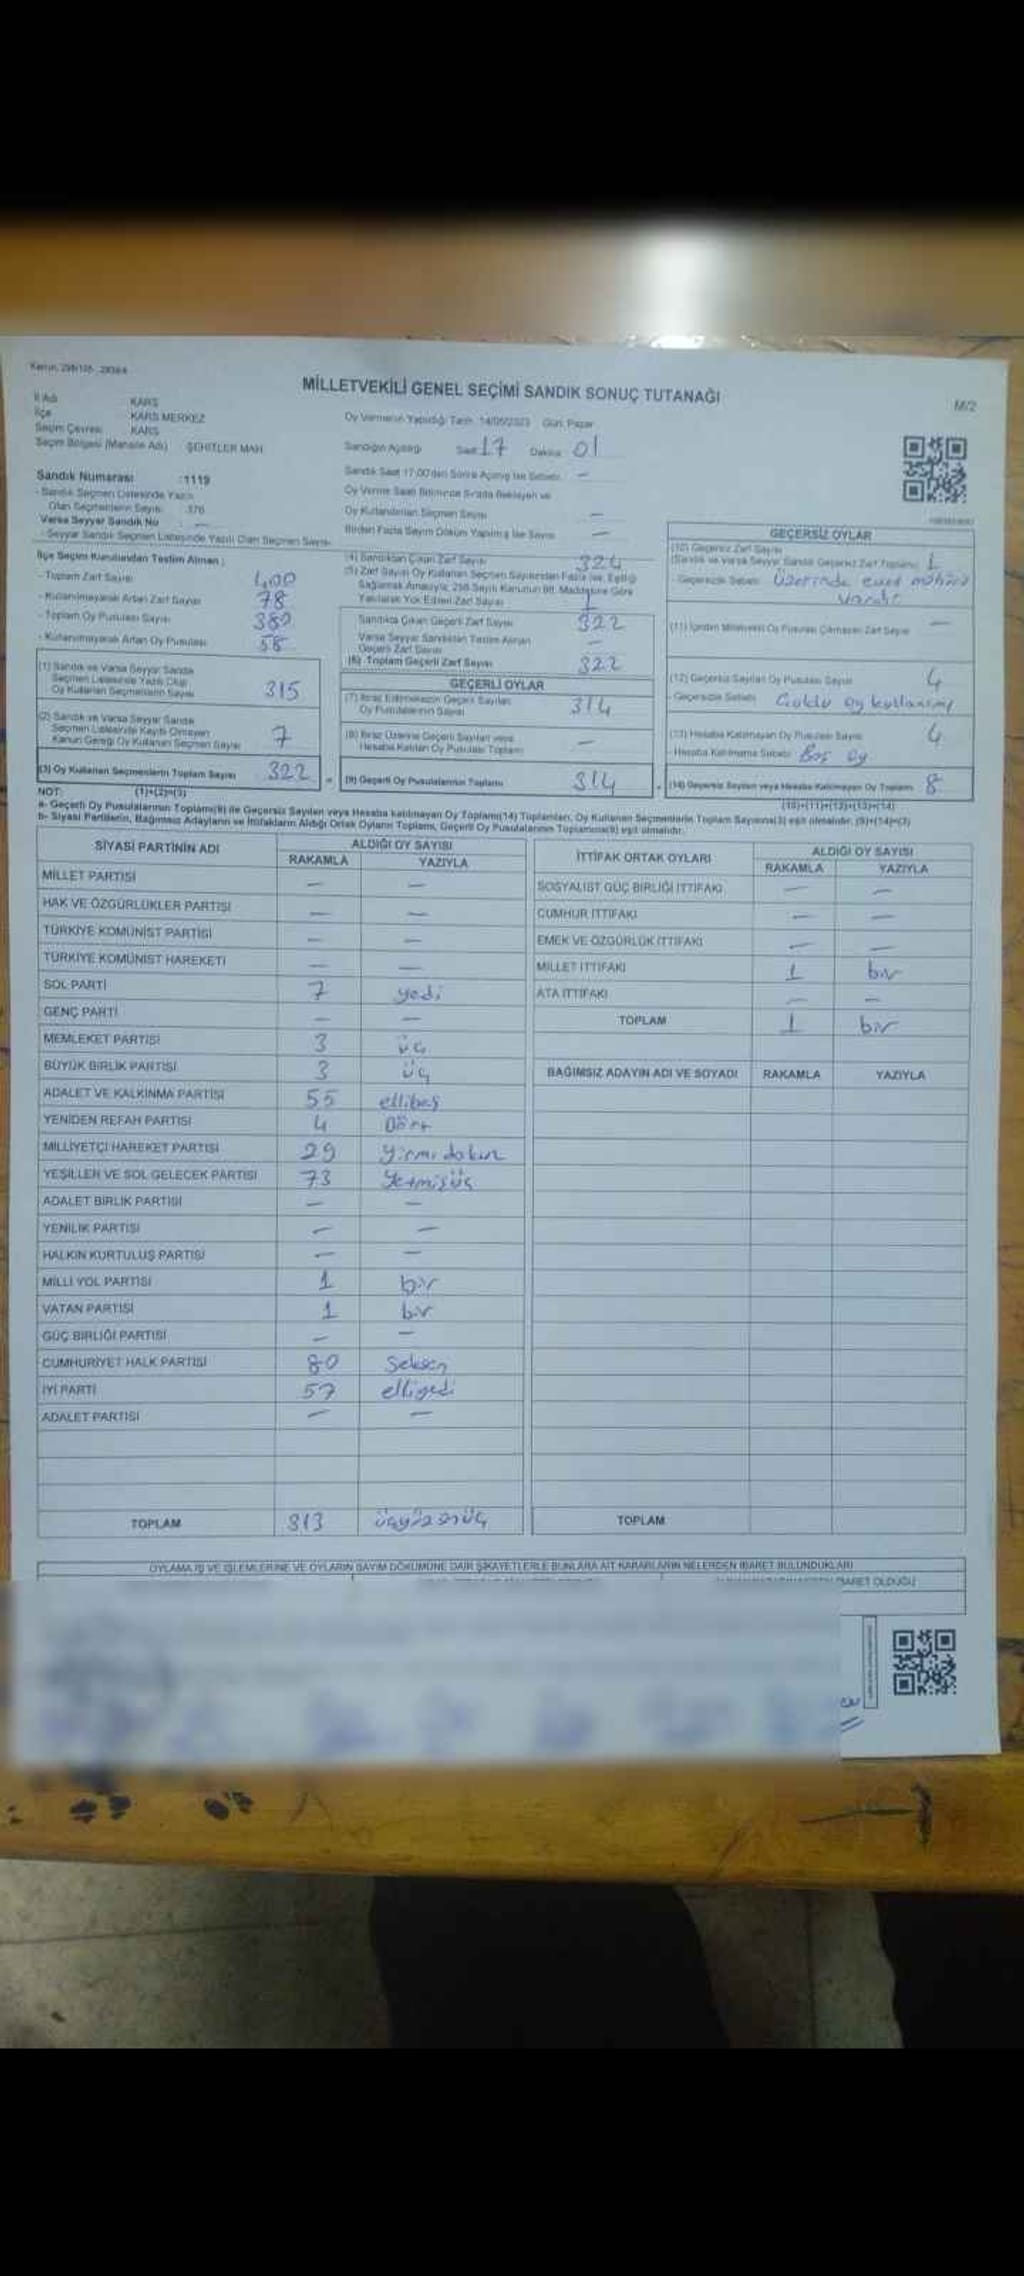 MİLLETVEKİLİ GENEL SEÇİMİ SANDIK SONUÇ TUTANAĞI
M/2
İl Adı : KARS
İlçe : KARS MERKEZ
Seçim Çevresi : KARS
Seçim Bölgesi (Mahalle Adı) ŞEHİTLER MAH.
Sandık Numarası :1119
- Sandık Seçmen Listesinde Yazılı
Olan Seçmenlerin Sayısı : 376
Varsa Seyyar Sandık No : —
- Seyyar Sandık Seçmen Listesinde Yazılı Olan Seçmen Sayısı
Oy Vermenin Yapıldığı Tarih: 14/05/2023 Gün: Pazar
Sandığın Açıldığı Saat: 17 Dakika: 01
Sandık Saat 17:00'den Sonra Açılmış İse Sebebi: —
Oy Verme Saati Bitiminde Sırada Bekleyen ve
Oy Kullandırılan Seçmen Sayısı —
Birden Fazla Sayım Döküm Yapılmış İse Sayısı —
İlçe Seçim Kurulundan Teslim Alınan ;
- Toplam Zarf Sayısı 400
- Kullanılmayarak Artan Zarf Sayısı 78
- Toplam Oy Pusulası Sayısı 380
- Kullanılmayarak Artan Oy Pusulası 58
(1) Sandık ve Varsa Seyyar Sandık
Seçmen Listesinde Yazılı Olup
Oy Kullanan Seçmenlerin Sayısı 315
(2) Sandık ve Varsa Seyyar Sandık
Seçmen Listesinde Kayıtlı Olmayan
Kanun Gereği Oy Kullanan Seçmen Sayısı 7
(3) Oy Kullanan Seçmenlerin Toplam Sayısı 322
(4) Sandıktan Çıkan Zarf Sayısı 324
(5) Zarf Sayısı Oy Kullanan Seçmen Sayısından Fazla İse, Eşitliği
Sağlamak Amacıyla, 298 Sayılı Kanunun 98. Maddesine Göre
Yakılarak Yok Edilen Zarf Sayısı 1
Sandıkta Çıkan Geçerli Zarf Sayısı 322
Varsa Seyyar Sandıktan Teslim Alınan
Geçerli Zarf Sayısı —
(6) Toplam Geçerli Zarf Sayısı 322
GEÇERLİ OYLAR
(7) İtiraz Edilmeksizin Geçerli Sayılan
Oy Pusulalarının Sayısı 314
(8) İtiraz Üzerine Geçerli Sayılan veya
Hesaba Katılan Oy Pusulası Toplamı —
(9) Geçerli Oy Pusulalarının Toplamı 314
GEÇERSİZ OYLAR
(10) Geçersiz Zarf Sayısı
(Sandık ve Varsa Seyyar Sandık Geçersiz Zarf Toplamı) 1
- Geçersizlik Sebebi: Üzerinde evet mührü
vardır
(11) İçinden Milletvekili Oy Pusulası Çıkmayan Zarf Sayısı —
(12) Geçersiz Sayılan Oy Pusulası Sayısı 4
- Geçersizlik Sebebi: Çoklu oy kullanımı
(13) Hesaba Katılmayan Oy Pusulası Sayısı 4
- Hesaba Katılmama Sebebi: Boş oy
(14) Geçersiz Sayılan veya Hesaba Katılmayan Oy Toplamı 8
NOT: (1)+(2)=(3) (10)+(11)+(12)+(13)=(14)
a- Geçerli Oy Pusulalarının Toplamı(9) ile Geçersiz Sayılan veya Hesaba katılmayan Oy Toplamı(14) Toplamları, Oy Kullanan Seçmenlerin Toplam Sayısına(3) eşit olmalıdır. (9)+(14)=(3)
b- Siyasi Partilerin, Bağımsız Adayların ve İttifakların Aldığı Ortak Oyların Toplamı, Geçerli Oy Pusulalarının Toplamına(9) eşit olmalıdır.
SİYASİ PARTİNİN ADI ALDIĞI OY SAYISI
RAKAMLA YAZIYLA
MİLLET PARTİSİ — —
HAK VE ÖZGÜRLÜKLER PARTİSİ — —
TÜRKİYE KOMÜNİST PARTİSİ — —
TÜRKİYE KOMÜNİST HAREKETİ — —
SOL PARTİ 7 yedi
GENÇ PARTİ — —
MEMLEKET PARTİSİ 3 üç
BÜYÜK BİRLİK PARTİSİ 3 üç
ADALET VE KALKINMA PARTİSİ 55 ellibeş
YENİDEN REFAH PARTİSİ 4 Dört
MİLLİYETÇİ HAREKET PARTİSİ 29 yirmi dokuz
YEŞİLLER VE SOL GELECEK PARTİSİ 73 yetmişüç
ADALET BİRLİK PARTİSİ — —
YENİLİK PARTİSİ — —
HALKIN KURTULUŞ PARTİSİ — —
MİLLİ YOL PARTİSİ 1 bir
VATAN PARTİSİ 1 bir
GÜÇ BİRLİĞİ PARTİSİ — —
CUMHURİYET HALK PARTİSİ 80 Seksen
İYİ PARTİ 57 elliyedi
ADALET PARTİSİ — —
TOPLAM 313 üçyüzonüç
İTTİFAK ORTAK OYLARI ALDIĞI OY SAYISI
RAKAMLA YAZIYLA
SOSYALİST GÜÇ BİRLİĞİ İTTİFAKI — —
CUMHUR İTTİFAKI — —
EMEK VE ÖZGÜRLÜK İTTİFAKI — —
MİLLET İTTİFAKI 1 bir
ATA İTTİFAKI — —
TOPLAM 1 bir
BAĞIMSIZ ADAYIN ADI VE SOYADI RAKAMLA YAZIYLA
TOPLAM
OYLAMA İŞ VE İŞLEMLERİNE VE OYLARIN SAYIM DÖKÜMÜNE DAİR ŞİKAYETLERLE BUNLARA AİT KARARLARIN NELERDEN İBARET BULUNDUKLARI
İBARET OLDUĞU